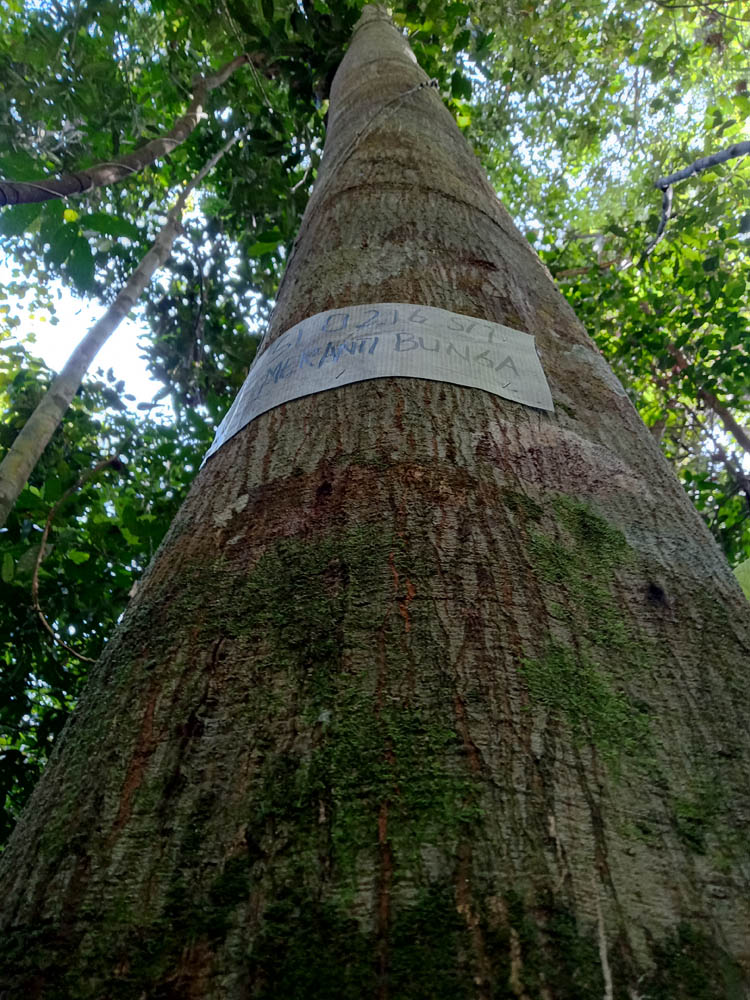 510216 SM.
MERANTI BUNGA